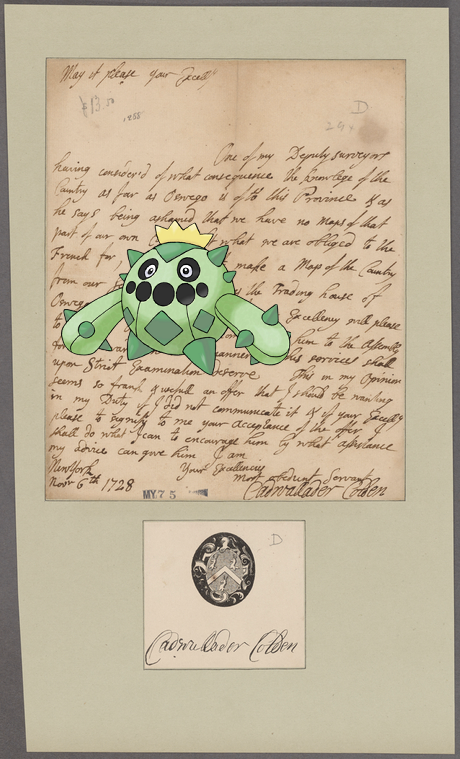 May it please your Excelly
D
One of my Deputy surveyors
having consider'd of what consequence the knowledge of the
Country as far as Oswego is of to this Province & as
he says being ashamed that we have no Maps of that
part of our own what we are obliged to the
French for, make a Map of the Country
from our the Trading house of
Oswego Excellency will please
to him to the Assembly
for his services shall
upon Strict Examination deserve. This in my Opinion
seems so frank & usefull an offer that I should be wanting
in my Duty if I did not communicate it & if your Excelly
please to signify to me your acceptance of the offer I
shall do what I can to encourage him by what assistance
my advice can give him I am
Your Excellencies
NewYork most obedient Servant
Novr 6th 1728 Cadwallader Colden
MY 75
D
Cadwallader Colden